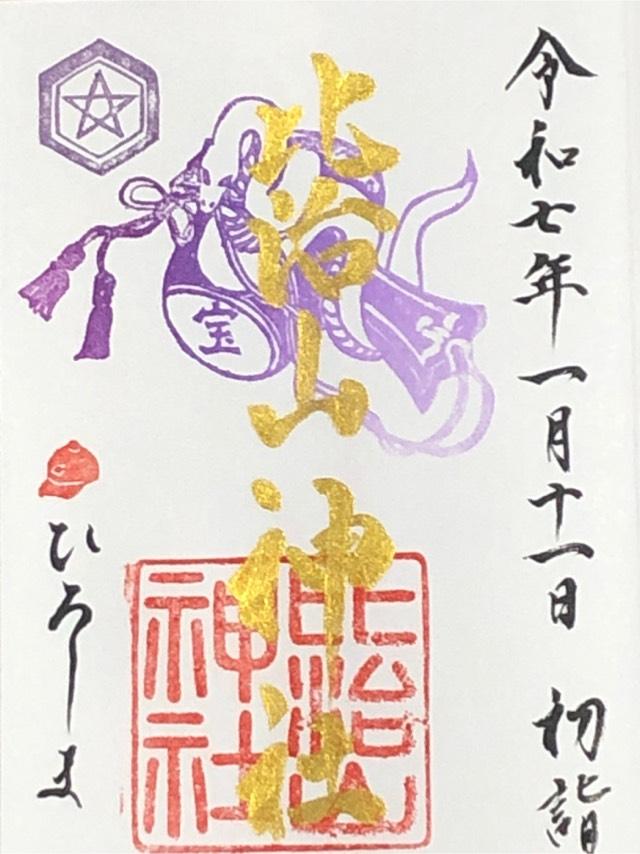 令和七年一月十一日 初詣
比治山神社
宝
比治山神社
ひろしま